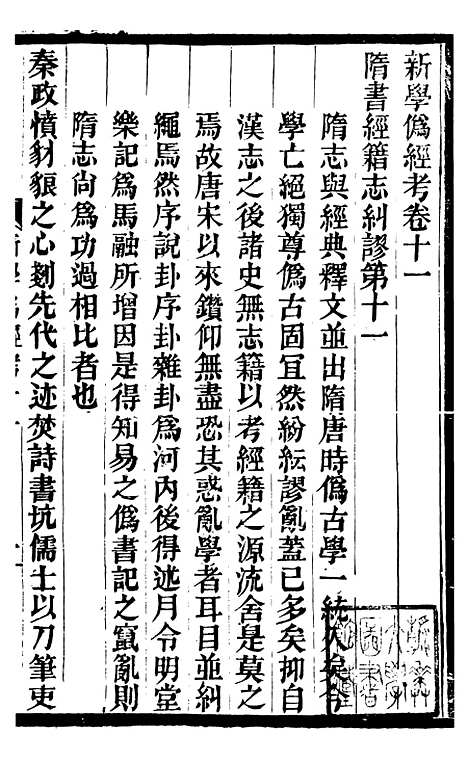 新學僞經考卷十一
隋書經籍志糾謬第十一
隋志與經典釋文並出隋唐時僞古學一統久矣今
學亡絕獨尊僞古固宜然紛紜謬亂蓋已多矣抑自
漢志之後諸史無志籍以考經籍之源流舍是莫之
焉故唐宋以來鑽仰無盡恐其惑亂學者耳目並糾
繩焉然序說卦序卦雜卦爲河內後得述月令明堂
樂記爲馬融所增因是得知易之僞書記之竄亂則
隋志尙爲功過相比者也
秦政憤豺狼之心剗先代之迹焚詩書坑儒士以刀筆吏